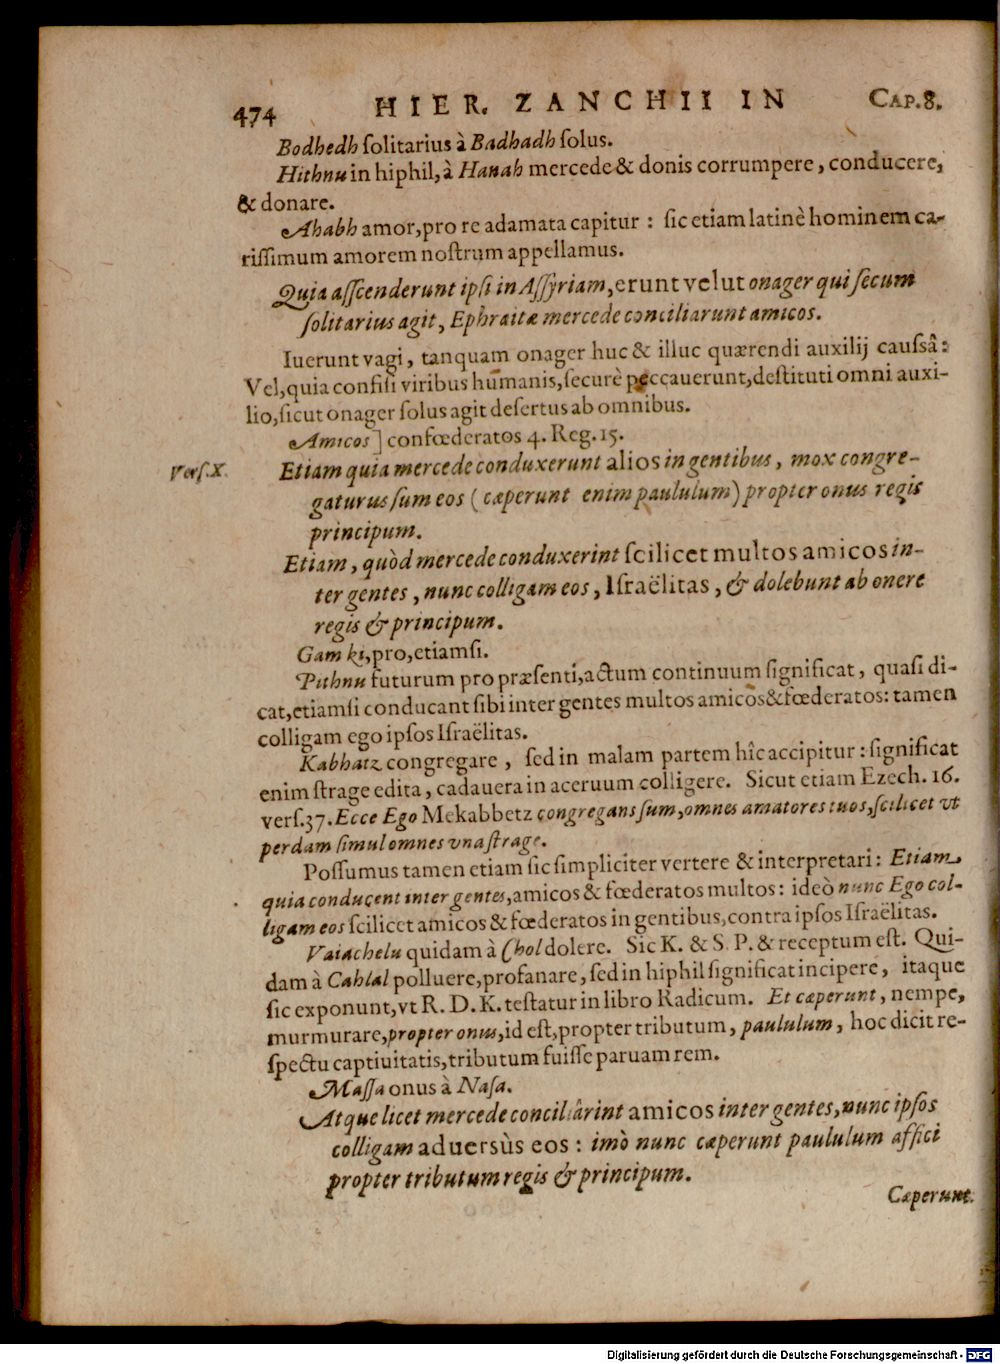 474 HIER. ZANCHII IN CAP.8.
Bodhedh ſolitarius à Badhadh ſolus.
Hithnu in hiphil, à Hanah mercede & donis corrumpere, conducere,
& donare.
Ahabh amor, pro re adamata capitur : ſic etiam latinè hominem ca-
riſſimum amorem noſtrum appellamus.
Quia aſſcenderunt ipſi in Aſſyriam, erunt velut onager qui ſecum
ſolitarius agit, Ephraitæ mercede conciliarunt amicos.
Iuerunt vagi, tanquam onager huc & illuc quærendi auxilij cauſsâ:
Vel, quia confiſi viribus humanis, ſecurè peccauerunt, deſtituti omni auxi-
lio, ſicut onager ſolus agit deſertus ab omnibus.
Amicos] confœderatos 4. Reg. 15.
Verſ. X. Etiam quia mercede conduxerunt alios in gentibus, mox congre-
gaturus ſum eos (cæperunt enim paululum) propter onus regis
principum.
Etiam, quòd mercede conduxerint ſcilicet multos amicos in-
ter gentes, nunc colligam eos, Iſraëlitas, & dolebunt ab onere
regis & principum.
Gam ki, pro, etiamſi.
Pithnu futurum pro præſenti, actum continuum ſignificat, quaſi di-
cat, etiamſi conducant ſibi inter gentes multos amicos & fœderatos: tamen
colligam ego ipſos Iſraëlitas.
Kabhatz congregare, ſed in malam partem hîc accipitur: ſignificat
enim ſtrage edita, cadauera in aceruum colligere. Sicut etiam Ezech. 16.
verſ. 37. Ecce Ego Mekabbetz congregans ſum, omnes amatores tuos, ſcilicet vt
perdam ſimul omnes vna ſtrage.
Poſſumus tamen etiam ſic ſimpliciter vertere & interpretari: Etiam
quia conducent inter gentes, amicos & fœderatos multos: ideò nunc Ego col-
ligam eos ſcilicet amicos & fœderatos in gentibus, contra ipſos Iſraëlitas.
Vaiachelu quidam à Chol dolere. Sic K. & S. P. & receptum eſt. Qui-
dam à Cahlal polluere, profanare, ſed in hiphil ſignificat incipere, itaque
ſic exponunt, vt R. D. K. teſtatur in libro Radicum. Et cæperunt, nempe,
murmurare, propter onus, id eſt, propter tributum, paululum, hoc dicit re-
ſpectu captiuitatis, tributum fuiſſe paruam rem.
Maſſa onus à Naſa.
Atque licet mercede conciliârint amicos inter gentes, nunc ipſos
colligam aduersùs eos : imò nunc cæperunt paululum affici
propter tributum regis & principum.
Cæperunt.
Digitalisierung gefördert durch die Deutsche Forschungsgemeinschaft - DFG